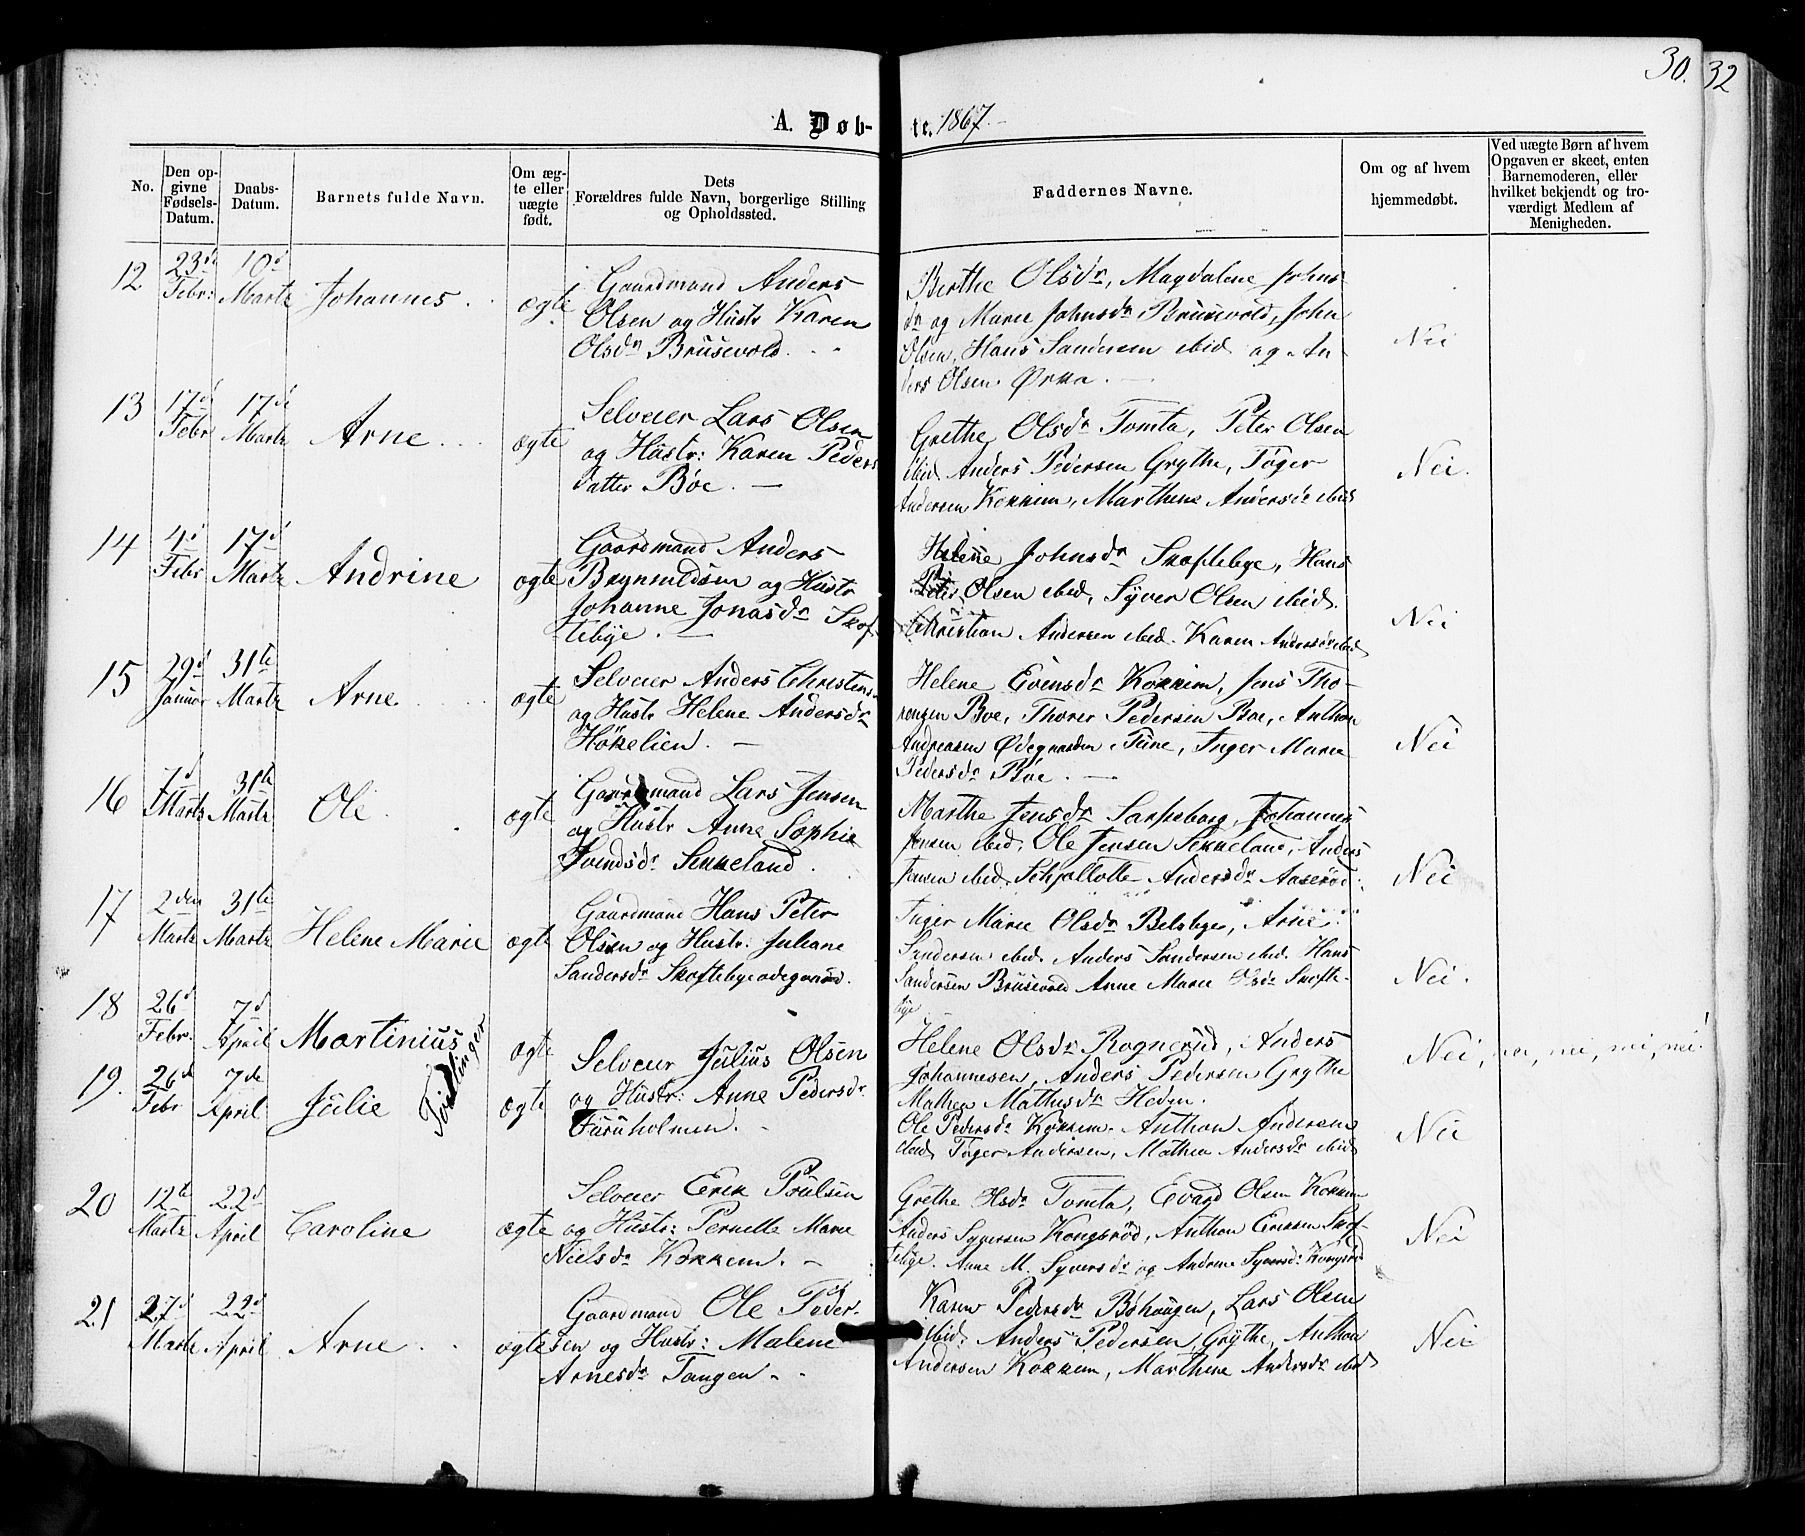 30. 32
A. Døb- te. 1867.
No.
Den opgivne Fødsels-Datum.
Daabs-Datum.
Barnets fulde Navn.
Om ægte eller uægte født.
Dets Forældres fulde Navn, borgerlige Stilling og Opholdssted.
Faddernes Navne.
Om og af hvem hjemmedøbt.
Ved uægte Børn af hvem Opgaven er skeet, enten Barnemoderen, eller hvilket bekjendt og troværdigt Medlem af Menigheden.
12 23d Febr: 10d Martz Johannes ægte
Gaardmand Anders
Olsen og Hustr Karen
Olsdr Brusevold.
Berthe Olsdr, Magdalene Johns
dr og Marie Johnsdr Brusevold, John
Olsen, Hans Sandersen ibid og An
ders Olsen Ørka.
Nei
13 17d Febr 17d Martz Arne ægte
Selveier Lars Olsen
og Hustr: Karen Peders
datter Bøe.
Grethe Olsdr Tomta, Peter Olsen
ibid Anders Pedersen Grythe, Tøger
Andersen Kokkim, Marthene Andersdr ibid
Nei.
14 4d Febr 17d Martz Andrine ægte
Gaardmand Anders
Brynnildsen og Hustr
Johanne Jonasdr Skof
tebye.
Helene Johnsdr Skoftebye, Hans
Olsen ibid, Syver Olsen ibid.
Christian Andersen ibid. Karen Andersdr ibid
Nei
15 29d Januar 31te Martz Arne ægte
Selveier Anders Christens
og Hustr Helene Andersdr
Høkelien.
Helene Evensdr Kokkim, Jens Tho-
resen Boe, Thorer Pedersen Boe, Anthon
Andreasen Ødegaarden Tune, Inger Marie
Pedersdr Bøe.
Nei
16 7d Martz 31te Martz Ole ægte
Gaardmand Lars Jensen
og Hustr Anne Sophie
Svendsdr Sekkeland.
Marthe Jensdr Sarpsborg, Johannes
Jensen ibid, Ole Jensen Sekkeland, Anders
Jensen ibid, Schjollotte Andersdr Aaserød.
Nei
17 2den Martz 31te Martz Helene Marie ægte
Gaardmand Hans Peter
Olsen og Hustr: Juliane
Sandersdr Skoftebyeødegaard.
Inger Marie Olsdr Belsbye, Arne
Sandersen ibid Anders Sandersen ibid. Hans
Sandersen Brusevold Anne Marie Olsdr Skofte-
bye
Nei.
18 26d Febr. 7d April Martinius ægte
Tvillinger
19. 26d Febr 7de April Julie ægte
Selveier Julius Olsen
og Hustr: Anne Pedersdr
Furuholmen.
Helene Olsdr Rognerud, Anders
Johannesen, Anders Pedersen Grythe
Mathea Mathisdr Heden.
Ole Pedersdr Kokkim. Anthon Andersen
ibid Tøger Andersen, Mathea Andersdr ibid
Nei, nei, nei, nei, nei!
Nei
20 12te Martz 22d April Caroline ægte
Selveier Erik Poulsen
og Hustr: Pernelle Marie
Nielsdr Kokkem.
Grethe Olsdr Tomta, Evard Olsen Kokkim
Anders Syversen Kongsrød, Anthon Eriksen Skof-
tebye. Anne M. Syversdr og Andrine Syversdr Kongsrød
Nei
21 27d Martz 22d April Arne ægte
Gaardmand Ole Peder-
sen og Hustr: Malene
Arnesdr Tangen
Karen Pedersdr Bøhaugen, Lars Olsen
ibid, Anders Pedersen Grythe, Anthon
Andersen Kokkem, Marthene Andersdr ibid
Nei